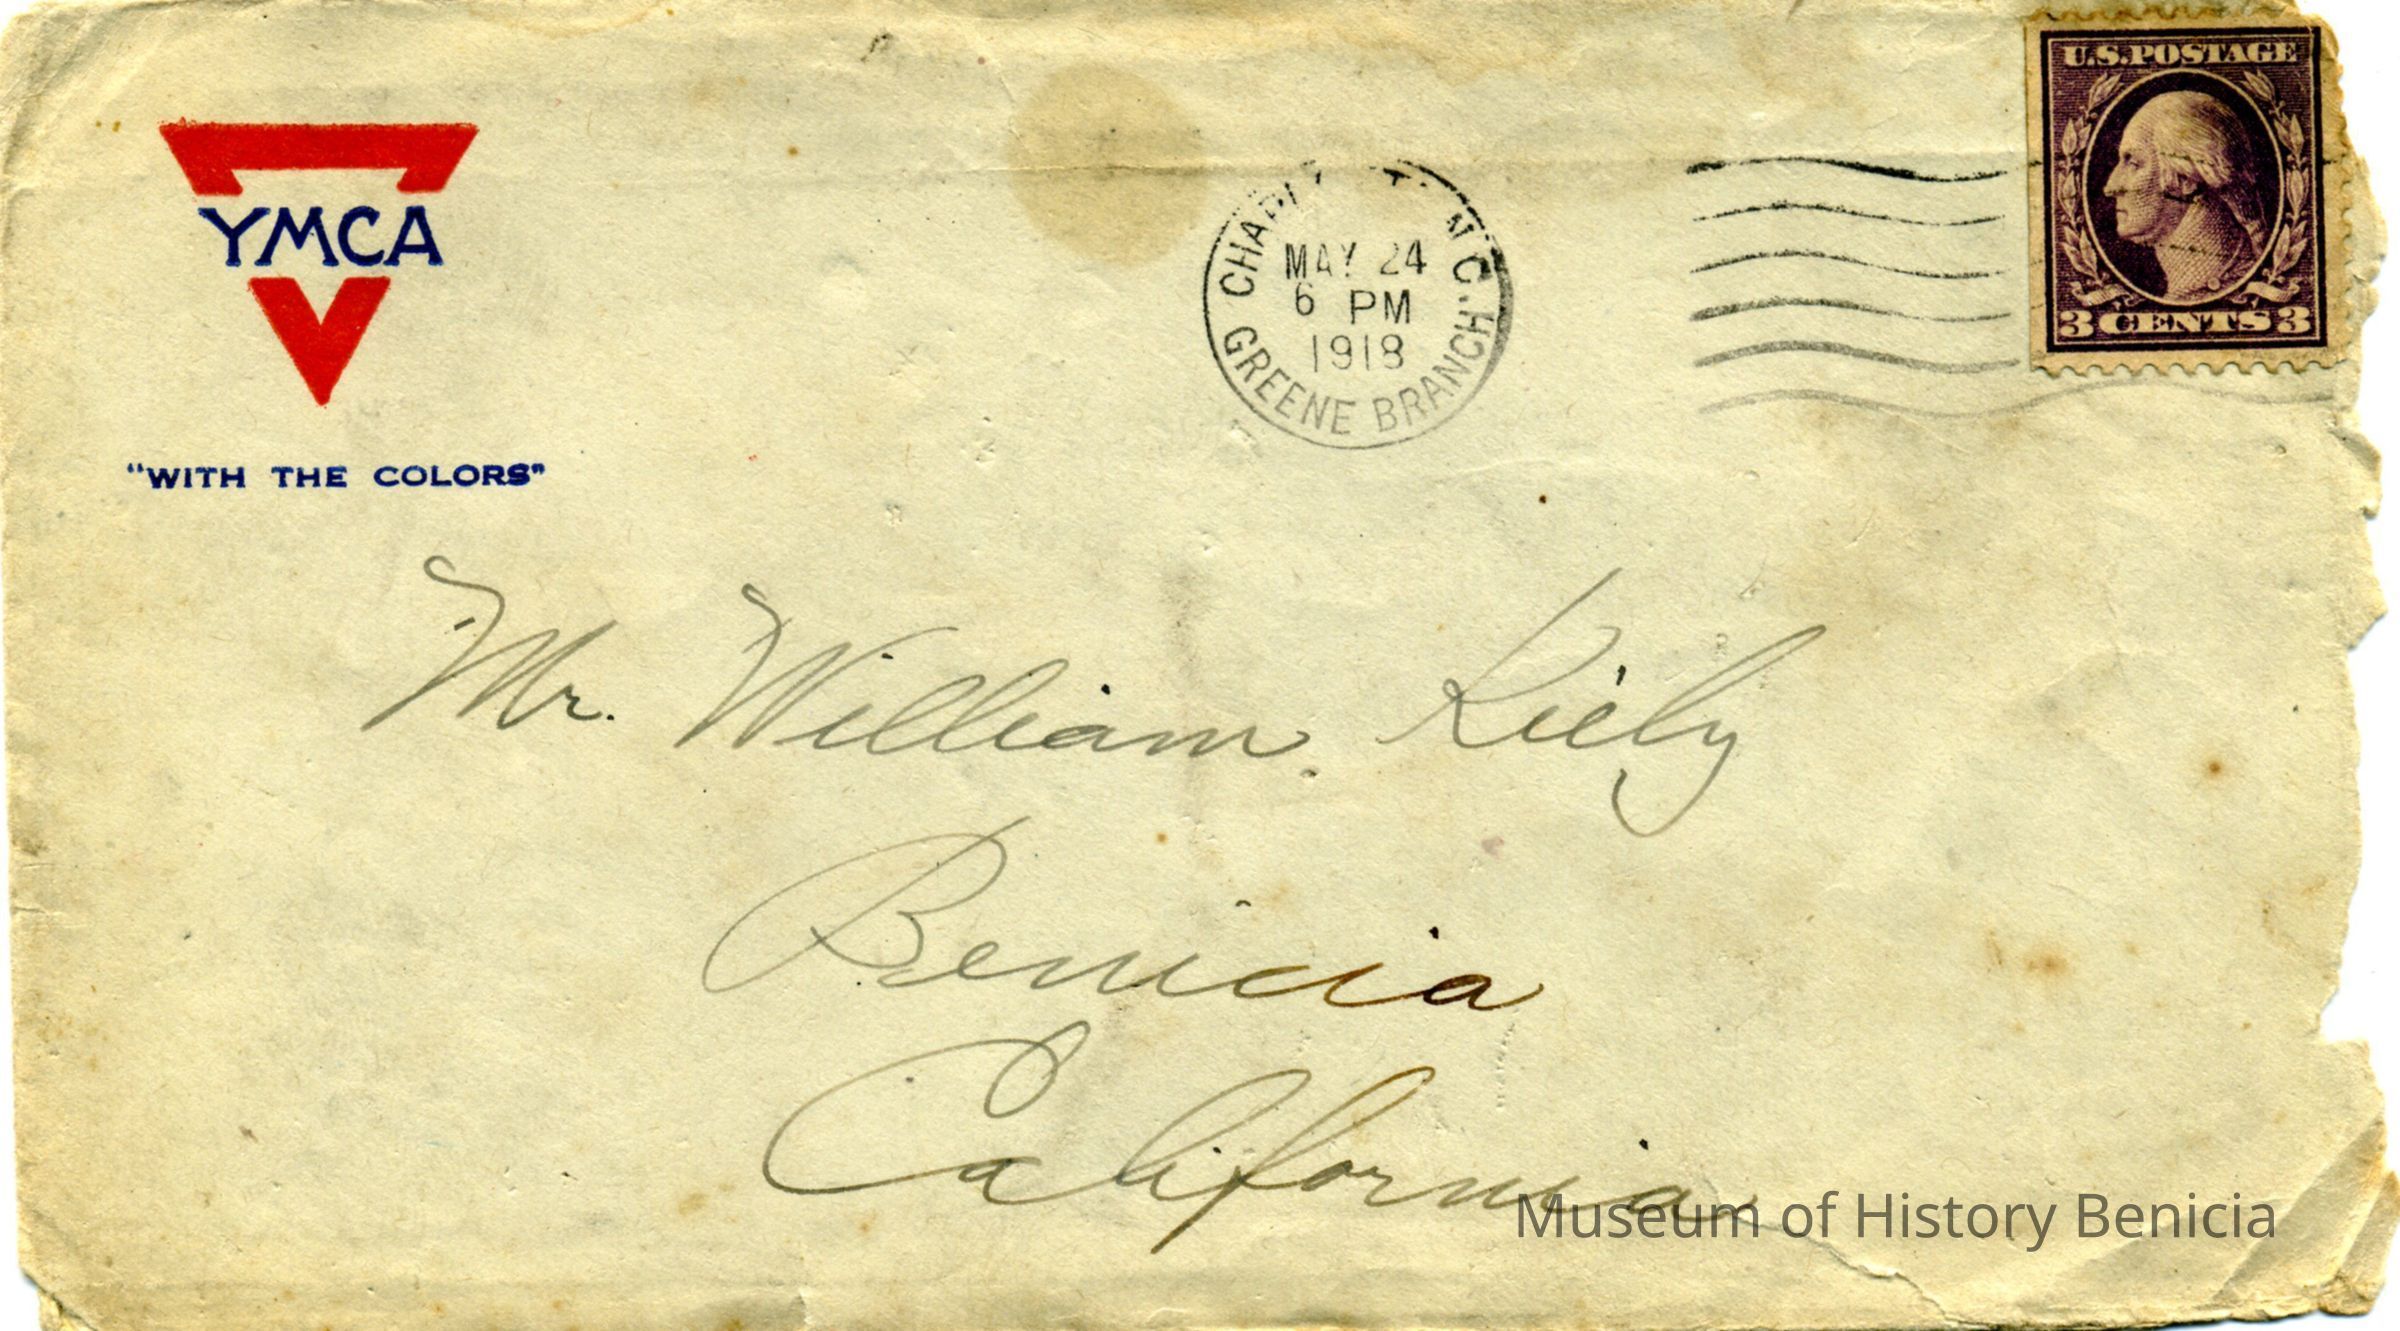 YMCA
"WITH THE COLORS"
N.C.
MAY 24
6 PM
1918
GREENE BRANCH.
U.S. POSTAGE
3 CENTS 3
Mr. William Kiely
Benicia
California
Museum of History Benicia